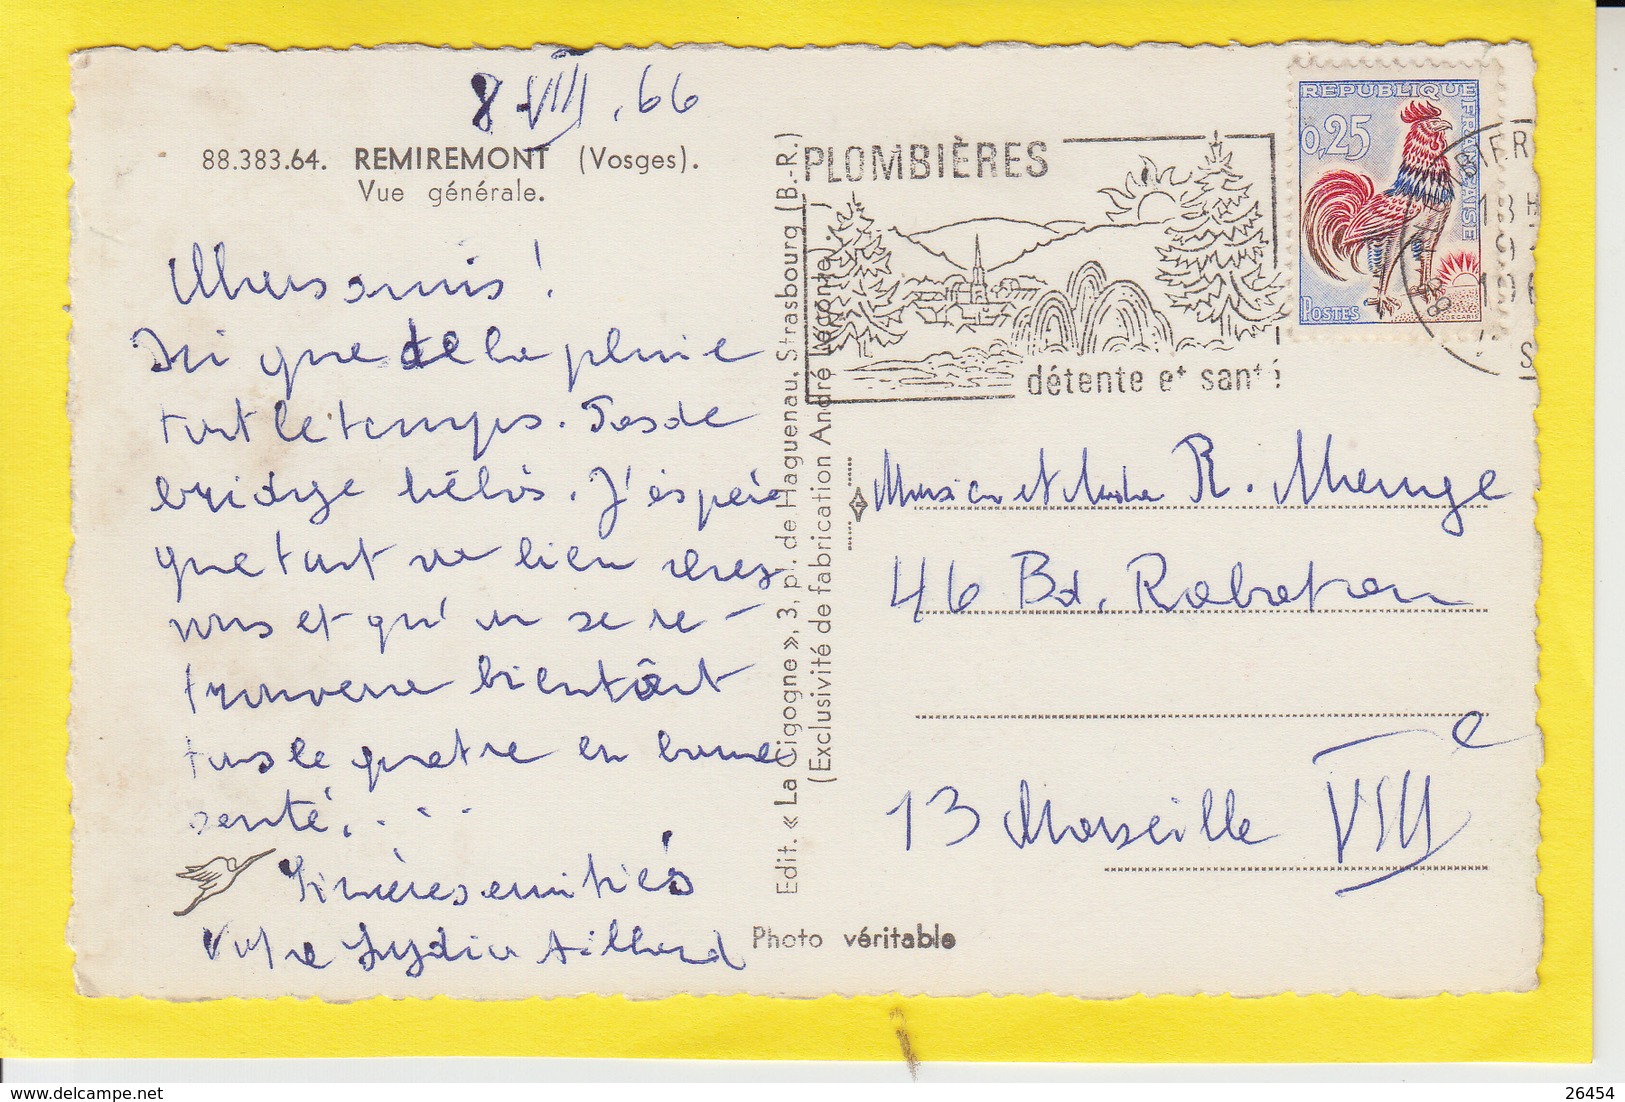 8 VIII . 66
88.383.64. REMIREMONT (Vosges).
Vue générale.
Chers amis !
Ici que de la pluie
tout le temps. Pas de
bridge hélas. J'espère
que tout va bien chez
vous et qu'on se re-
trouvera bientôt
tous le quatre en bonne
santé. . . .
Sincères amitiés
Votre Lydia
Photo véritable
Edit. « La Cigogne », 3, pl. de Haguenau, Strasbourg (B.-R.)
(Exclusivité de fabrication André Leconte.)
PLOMBIÈRES
détente et santé
REPUBLIQUE
FRANÇAISE
0,25
POSTES
DECARIS
88
18 H
9
Monsieur et Madame R.
46 Bd. Rabatau
13 Marseille VIII e
26454